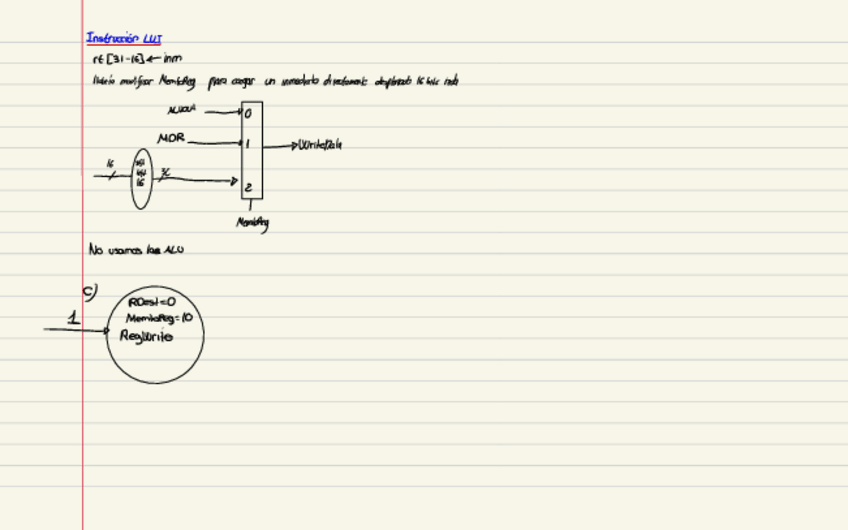 Instrucción LUI
rt [31-16] ← inm
modificar MemtoReg para cargar un inmediato directamente desplazado 16 bits
ALUOut
0
MDR
1
WriteData
16
32
16
2
MemtoReg
No usamos la ALU
C)
1
RDest=0
MemtoReg=10
RegWrite